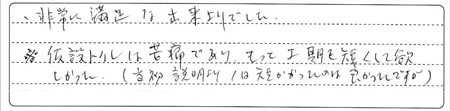 、非常に満足な出来上りでした。
※仮設トイレは苦痛であり、もって工期を短くして欲
しかった。(当初説明より1日短かかったのは良かったですが)